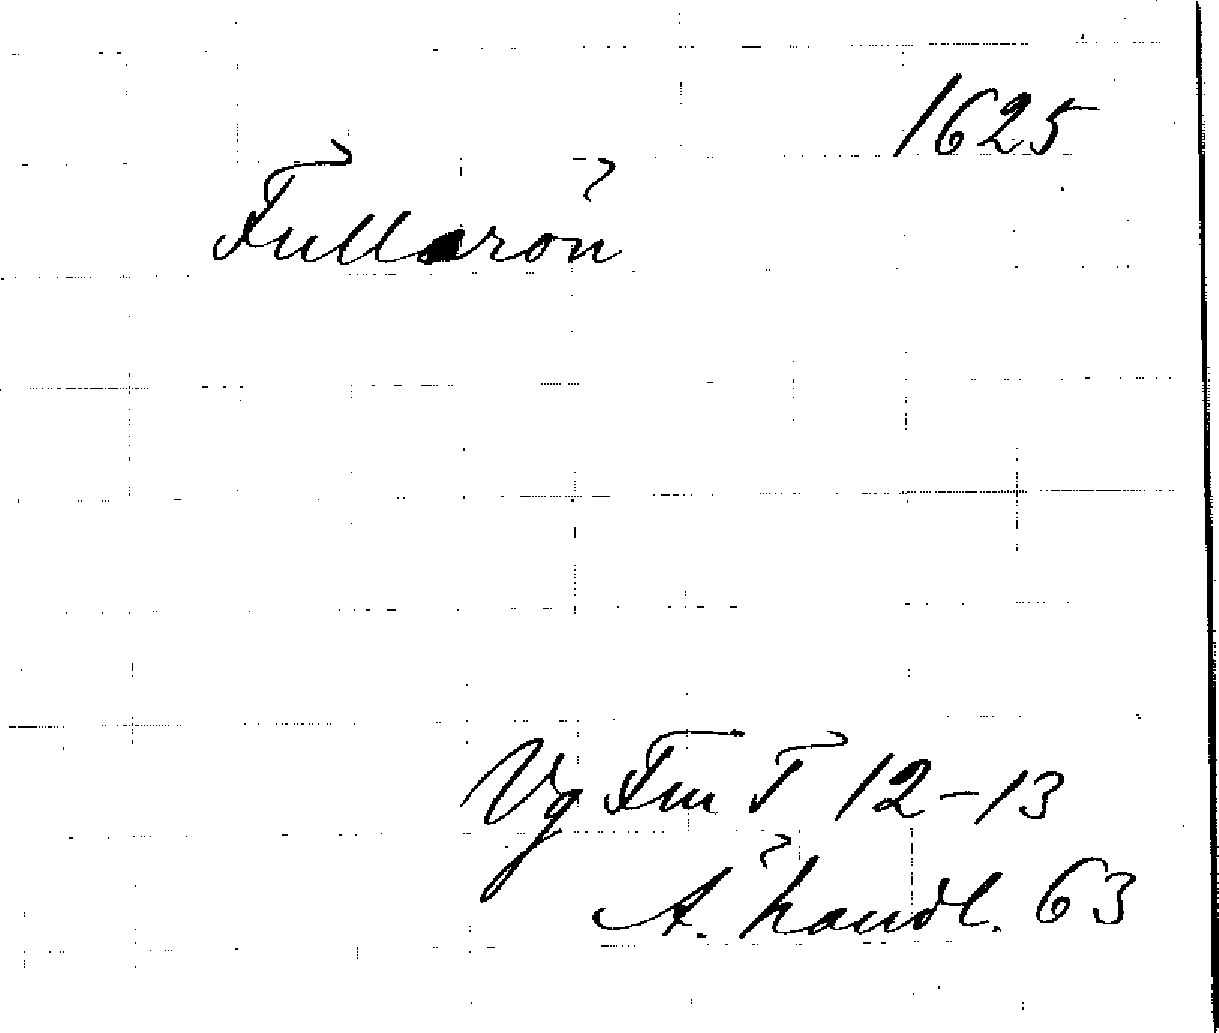 1625
Fullarön
Vg Frn T 12-13
Ä. handl. 63